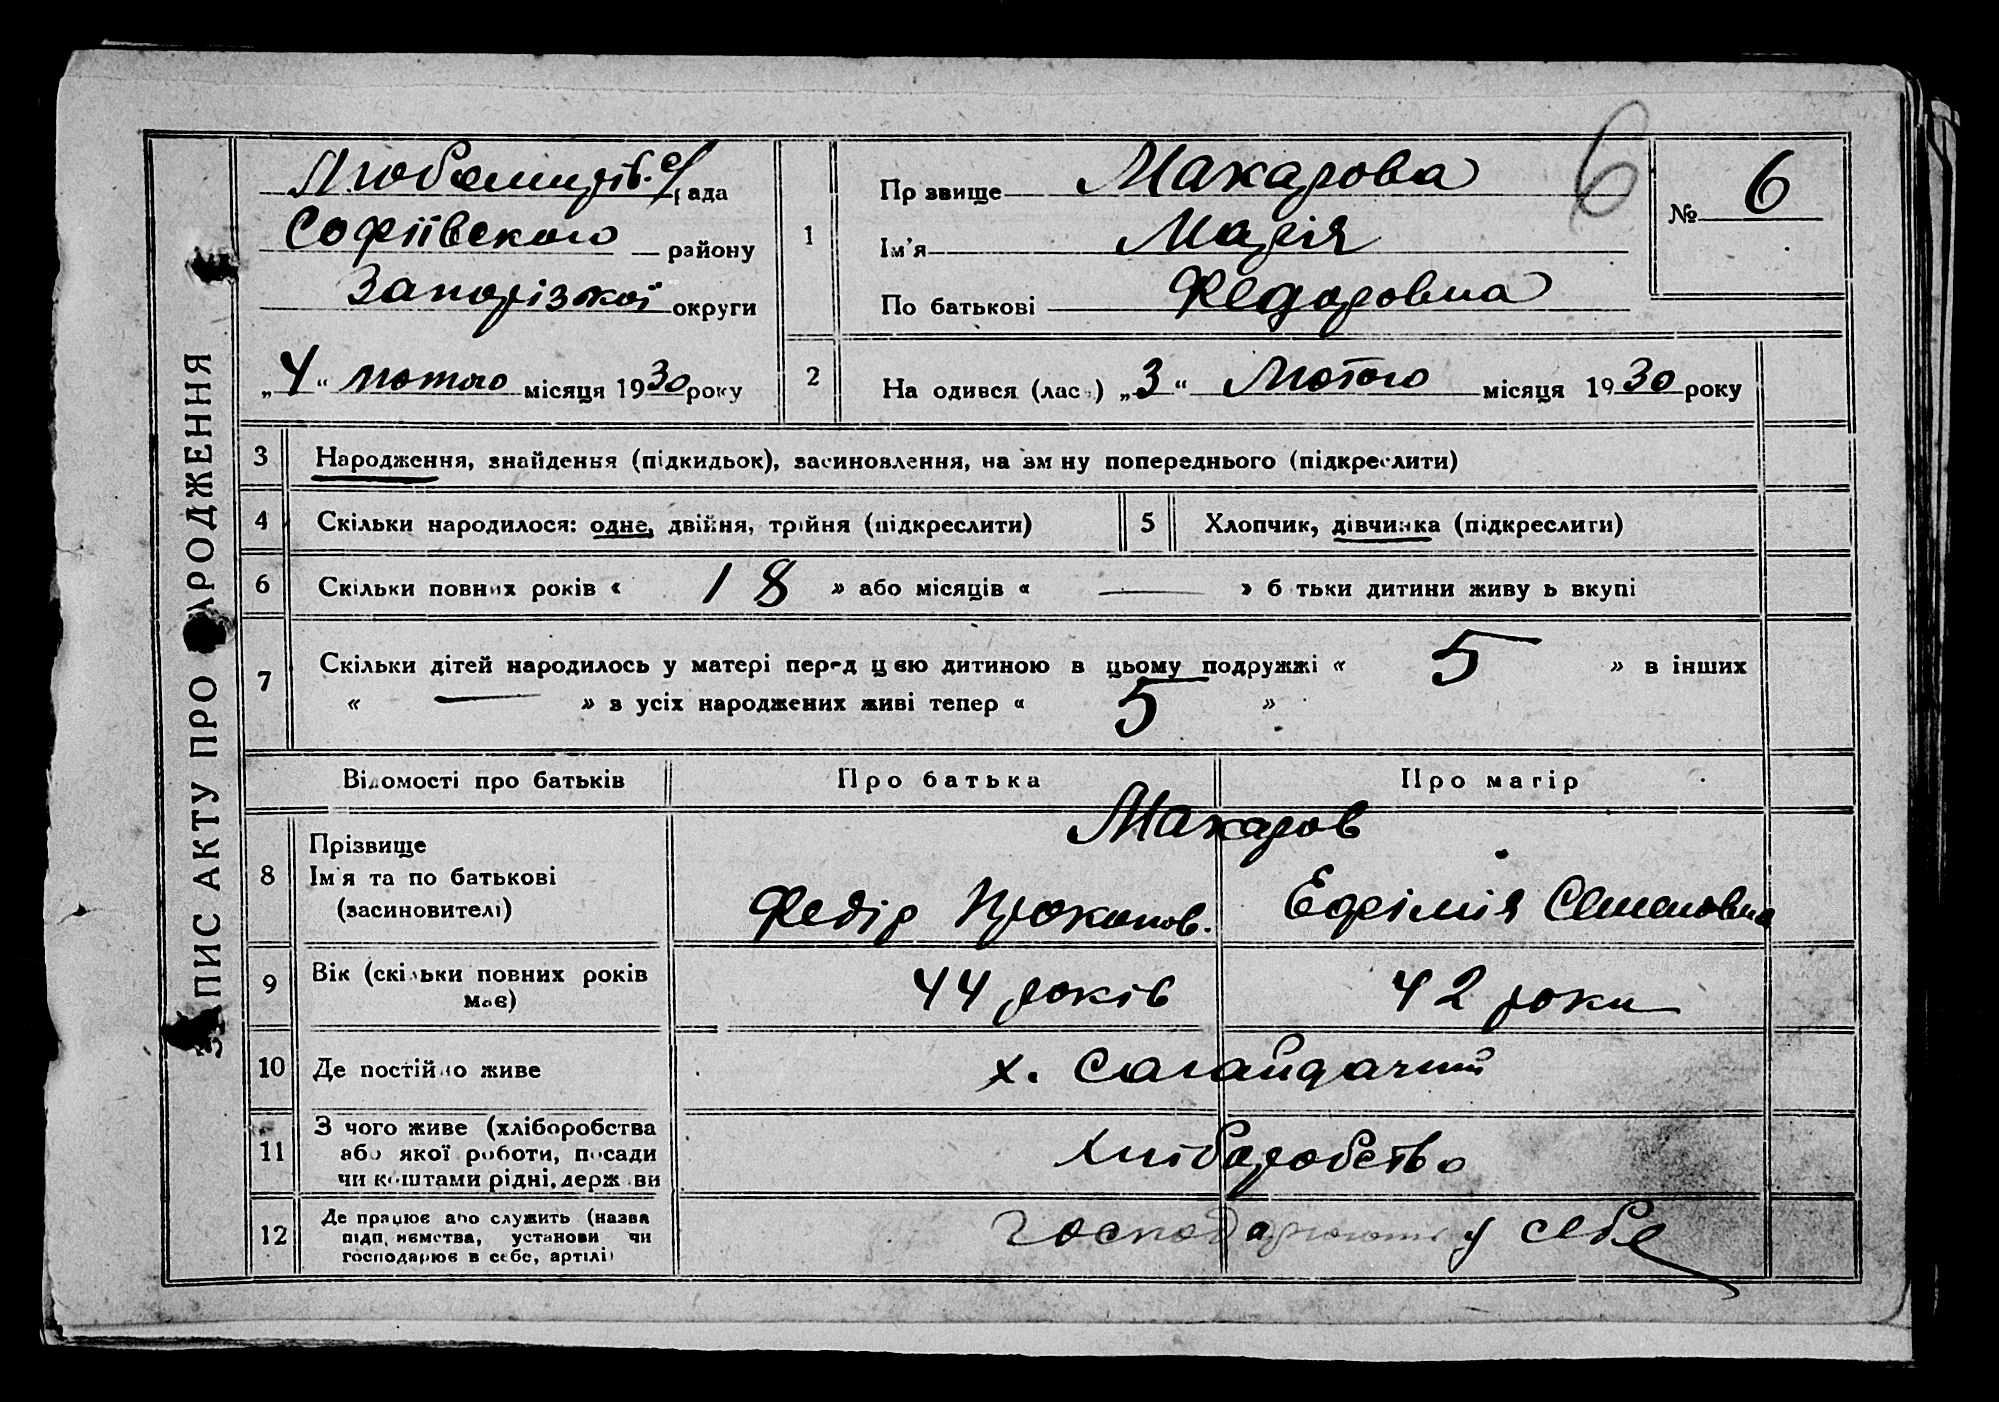 ЗАПИС АКТУ ПРО НАРОДЖЕННЯ
Любимирів. с/рада
Софіївського району
Запорізкої округи
„4“ лютого місяця 1930 року
1
Прзвище Макарова
Ім'я Марія
По батькові Федоровна
6
№ 6
2
На одився (лас) „3“ Лютого місяця 1930 року
3 Народження, знайдення (підкидьок), засиновлення, на змну попереднього (підкреслити)
4 Скільки народилося: одне, двійня, трійня (підкреслити)
5 Хлопчик, дівчинка (підкреслити)
6 Скільки повних років « 18 » або місяців « — » б тьки дитини живу ь вкупі
7 Скільки дітей народилось у матері перед цією дитиною в цьому подружжі « 5 » в інших
« — » з усіх народжених живі тепер « 5 »
Відомості про батьків
Про батька
Про матір
8 Прізвище
Ім'я та по батькові
(засиновителі)
Макаров
Федір Прокопов.
Ефімія Семеновна
9 Вік (скільки повних років
має)
44 років
42 роки
10 Де постійно живе
х. Сагайдачий
11 З чого живе (хліборобства
або якої роботи, посади
чи коштами рідні, держави
хліборобство
12 Де працює або служить (назва
підприємства, установи чи
господарює в себе, артілі)
Господарюють у себе